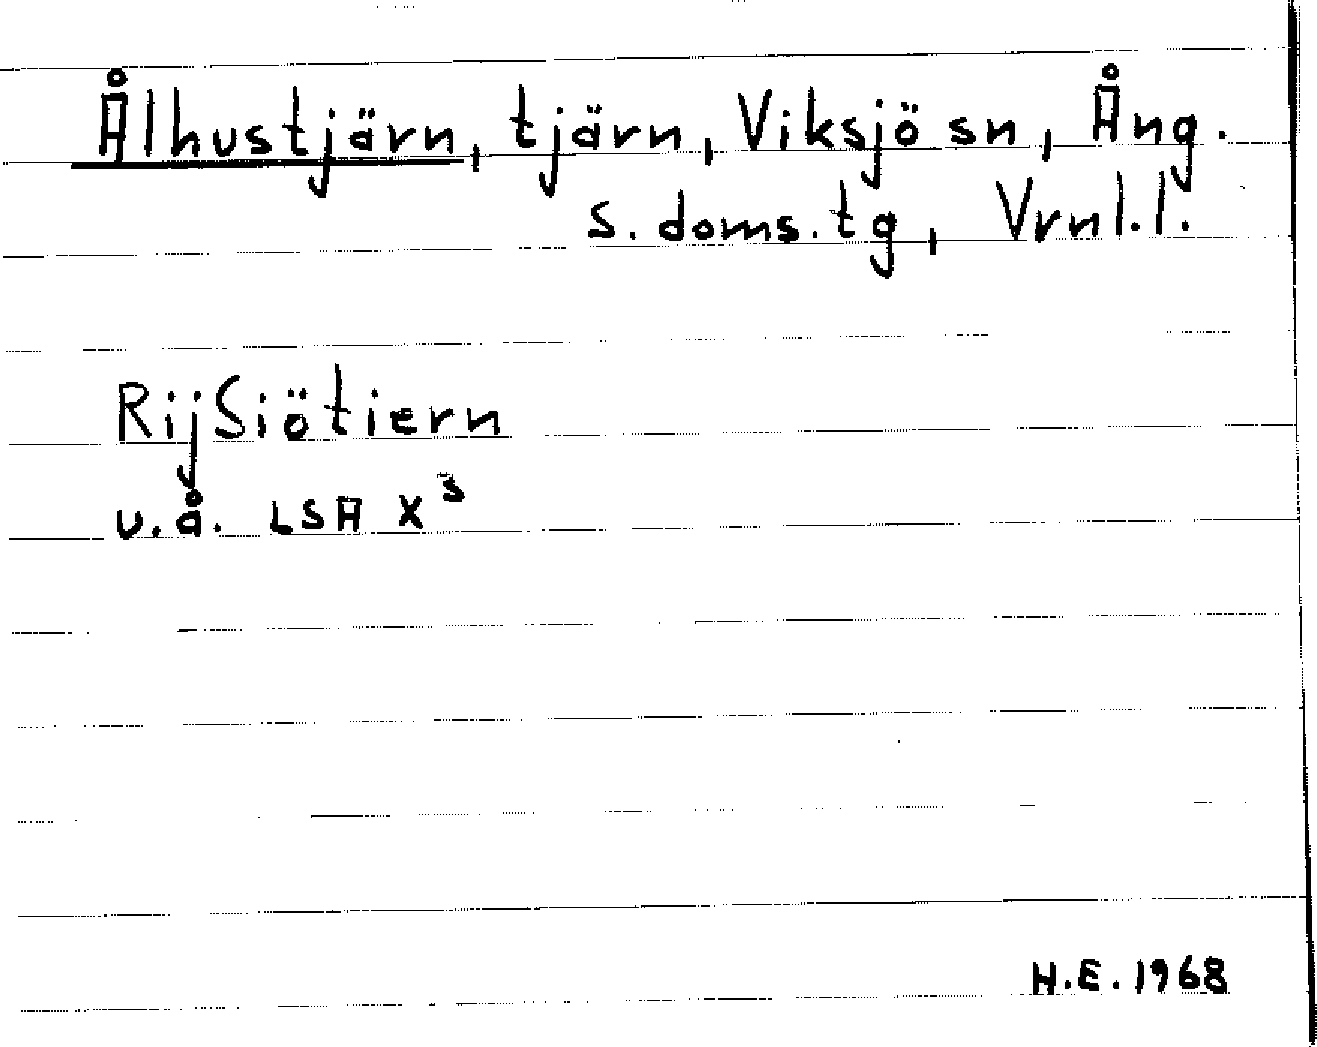 Ålhustjärn, tjärn, Viksjö sn, Ång.
s. doms. tg, Vrnl.l.
RijSiötiern
u.å. LSA X³
H.E. 1968